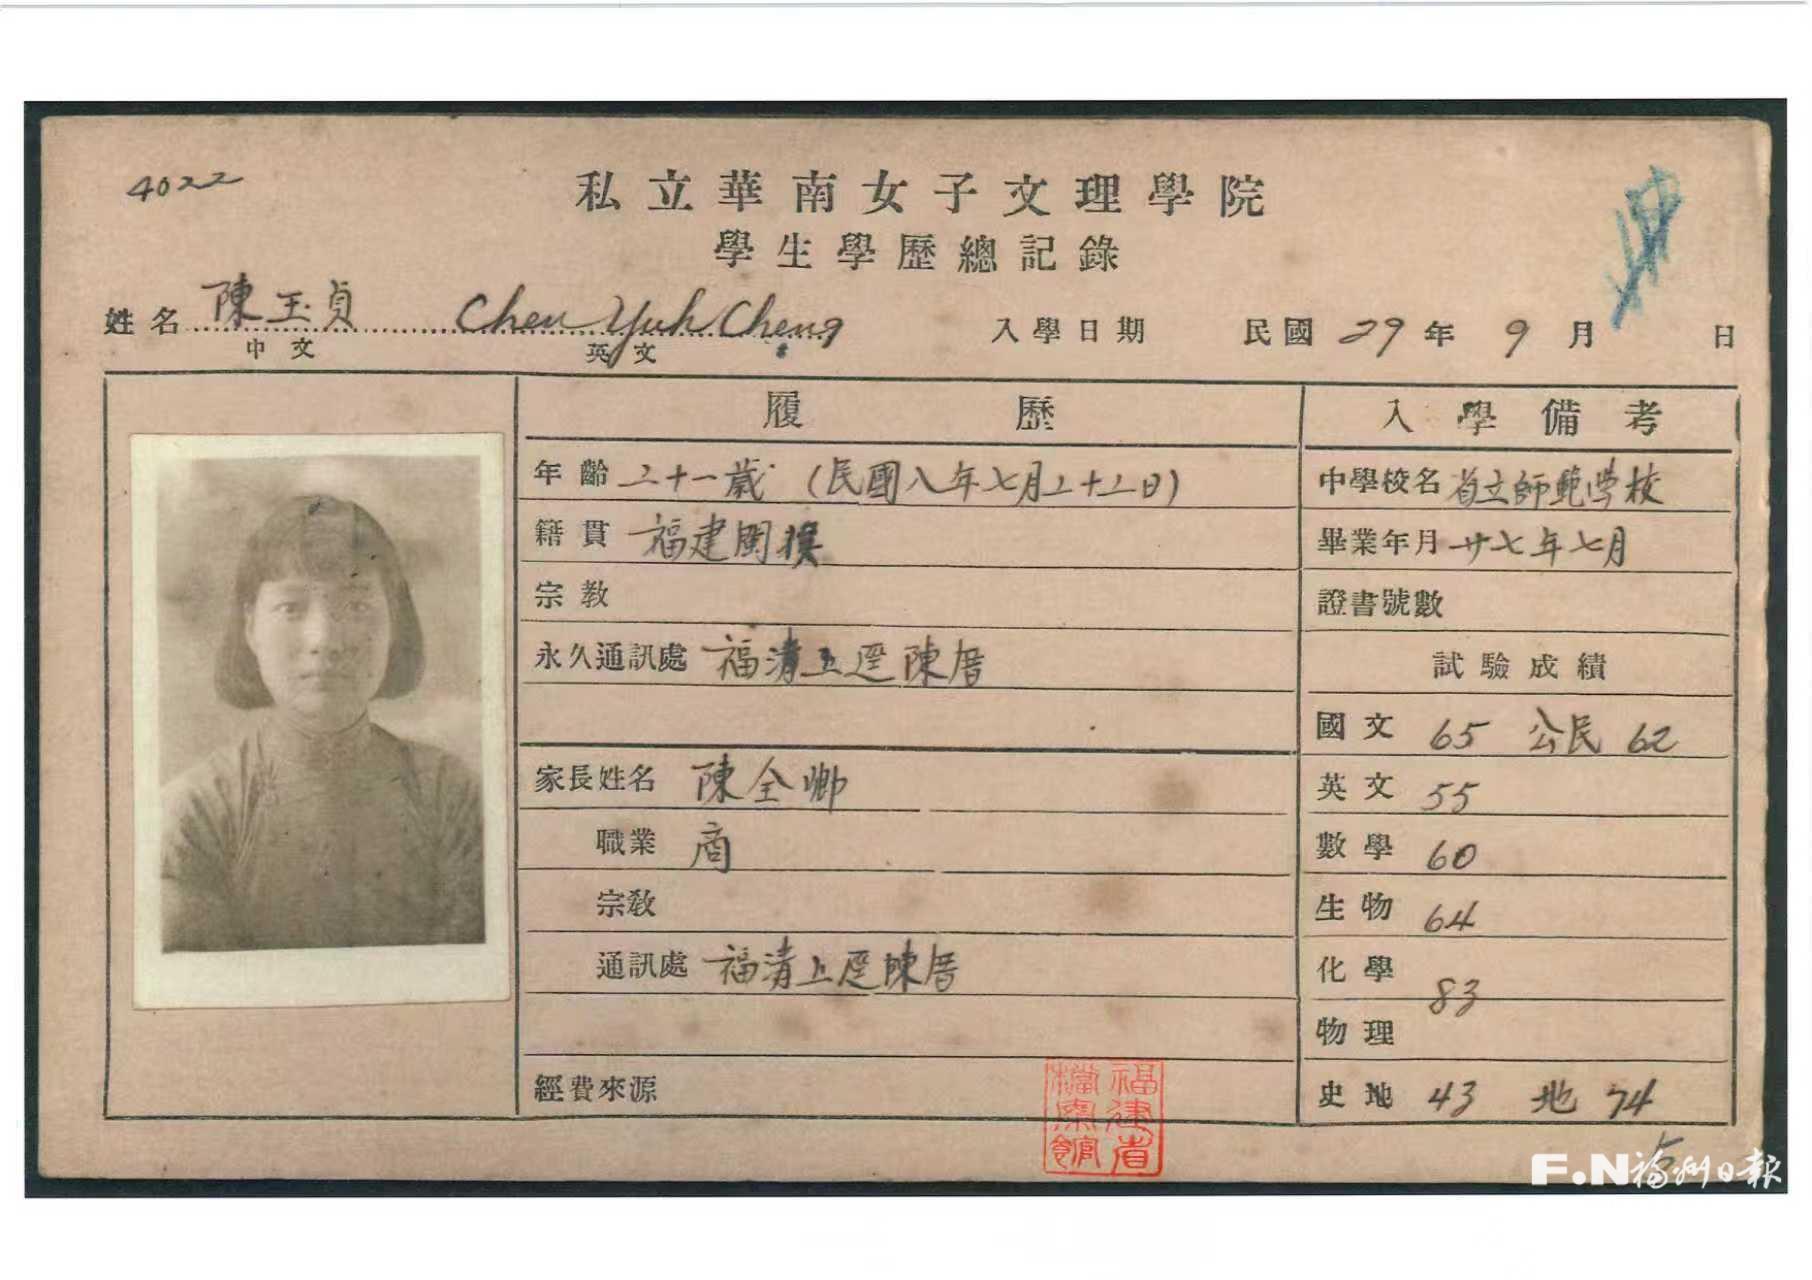 4022
私立華南女子文理學院
學生學歷總記錄
姓名 陳玉貞 Chen Yuh Cheng 入學日期 民國 29 年 9 月 日
中文 英文
履歷
年齡 二十一歲 (民國八年七月二十二日)
籍貫 福建閩侯
宗教
永久通訊處 福清上逕陳厝
家長姓名 陳全卿
職業 商
宗教
通訊處 福清上逕陳厝
經費來源
入學備考
中學校名 省立師範学校
畢業年月 廿七年七月
證書號數
試驗成績
國文 65 公民 62
英文 55
數學 60
生物 64
化學 83
物理
史地 43 地 74
福建省
檔案館
F.N福州日報